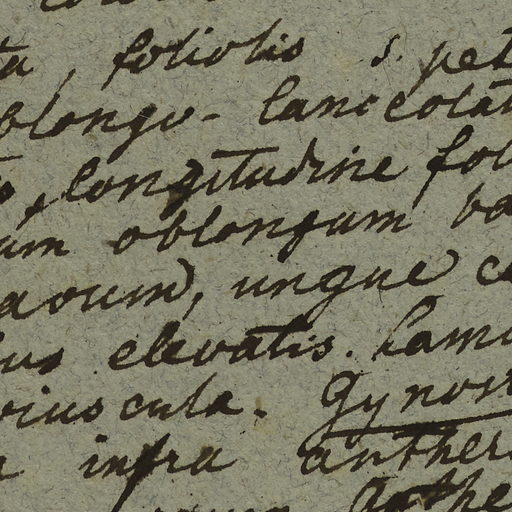 ta, foliolis s. pet
blongo-lanceolat
longitudine fol
um oblongum ba
avum, ungue c
bus elevatis. Lam
viuscula. Gynos
infra anther
Anthe